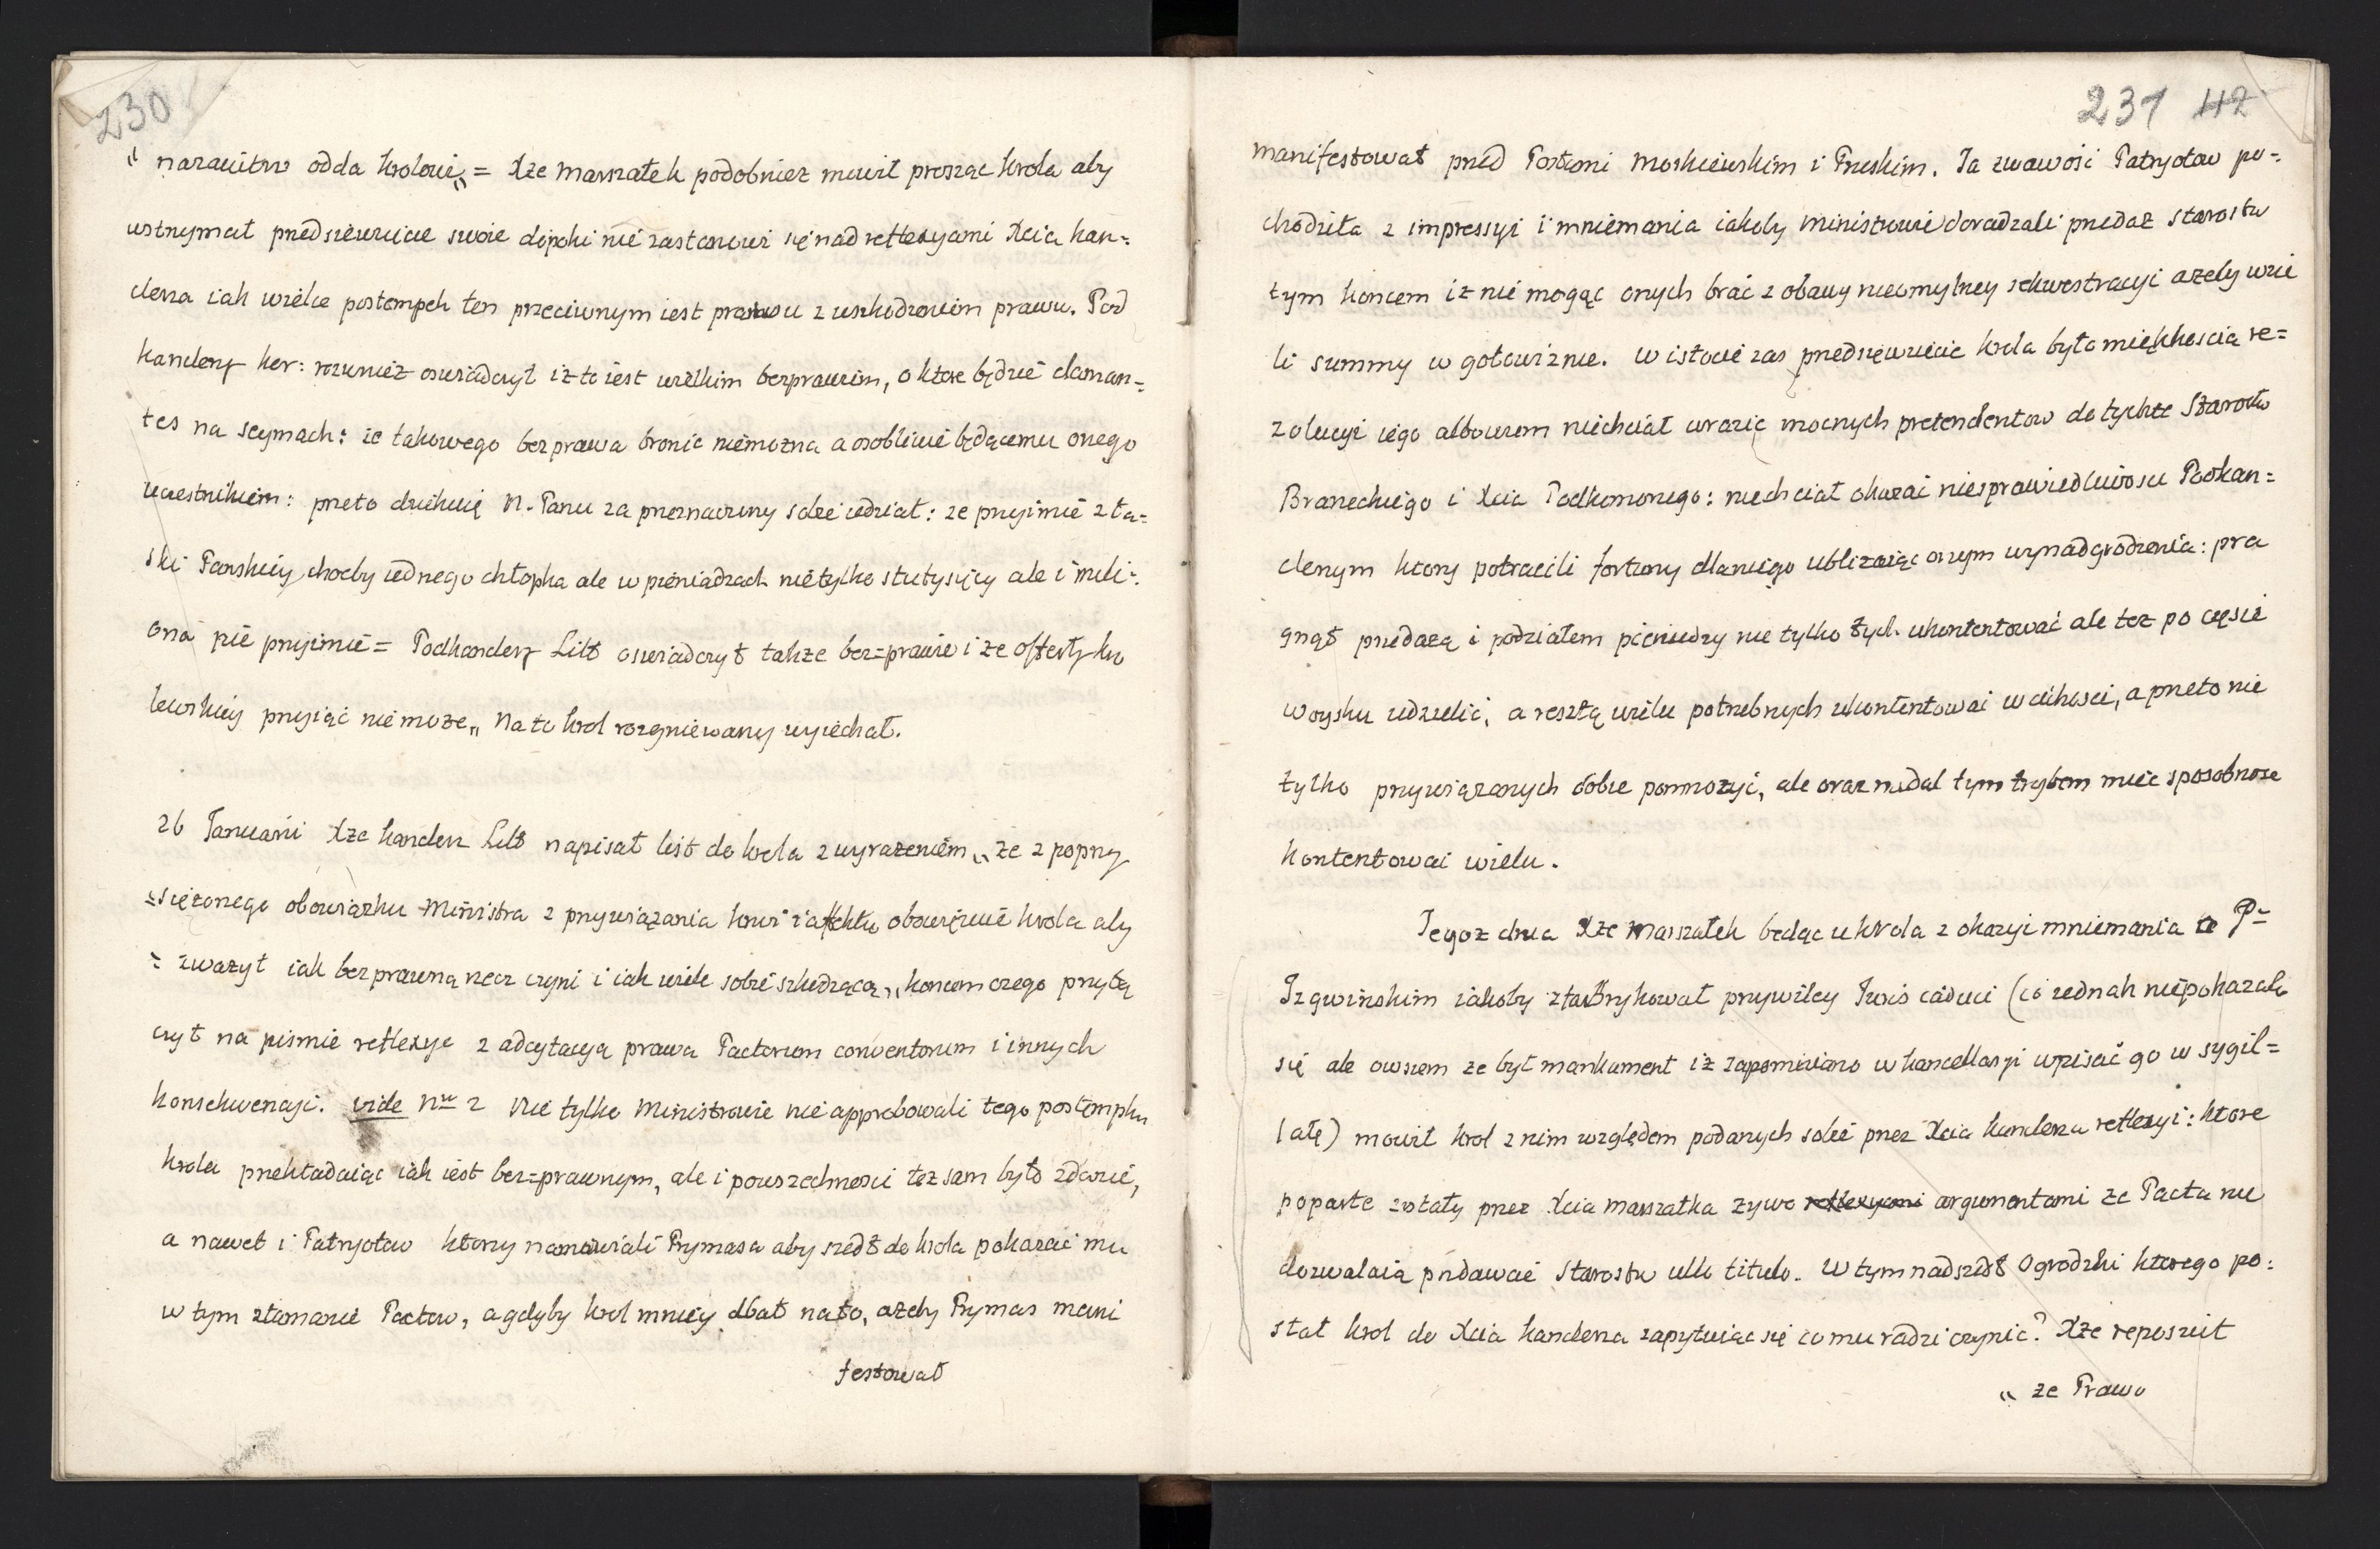 230
„ nazaiutrz odda krolowi „ = Xże Marszałek podobnież mowił prosząc krola aby
wstrzymał przedsiewzięcie swoie dopoki nie zastanowi się nad reflexyami Xcia Kan=
clerza iak wielce postempek ten przeciwnym iest prawu z uszkodzeniem prawu. Pod
kanclerzy kor: rowniez oswiadczył iż to iest wielkim bezprawiem, o ktore będzie claman=
tes na seymach: ze takowego bezprawa bronic niemozna a osobliwie będącemu onego
uczestnikiem: przeto dziękuię N. Panu za przeznaczony sobie udział: ze przyimie z ła=
ski Panskiey choćby iednego chłopka ale w pieniądzach nie tylko stu tysięcy ale i mili=
ona nie przyimie = Podkanclerzy Litt oswiadczył takze bez=prawie i ze offerty kro
lewskiey przyiąć nie może „ Na to krol rozgniewany wyiechał.
26 Januarii Xże kanclerz Litt napisał list do krola z wyrażeniem „ że z poprzy
=siężonego obowiązku Ministra z przywiązania krwi i affektu obowięzuie krola aby
= zwazył iak bezprawną rzecz czyni i iak wiele sobie szkodzącą „ koncem czego przyłą
czył na pismie reflexye z adcytacyą prawa Pactorum conventorum i innych
konsekwencyi. vide Nro 2 Nie tylko Ministrowie nie approbowali tego postempku
krola przekładaiąc iak iest bez=prawnym, ale i powszechnosci tez sam było zdanie,
a nawet i Patryotow ktorzy namawiali Prymasa aby szedł do krola pokazać mu
w tym złamanie Pactow, a gdyby krol mniey dbał na to, ażeby Prymas mani
festował
231 42
manifestował przed Posłami Moskiewskim i Pruskim. Ta zwawość Patryotow po=
chodziła z impressyi i mniemania iakoby Ministrowie doradzali przedaż starostw
tym koncem iż nie mogąc onych brać z obawy nieomylney sekwestracyi ażeby wzie
li summy w gotowiznie. W istocie zas przedsięwzięcie krola było miękkoscią re=
zolucyi iego albowiem niechciał urazić mocnych pretendentow do tychże Starostw
Braneckiego i Xcia Podkomorzego: niechciał okazać niesprawiedliwosci Podkan=
clerzym ktorzy potracili fortuny dla niego ubliżaiąc onym wynadgrodzenia: pra
gnął przedażą i podziałem pieniędzy nie tylko tych ukontentować ale też po częsci
woysku udzielić, a resztą wielu potrzebnych ukontentować w cichosci, a przeto nie
tylko przywiązanych dobrze pomnożyć, ale oraz nadal tym trybem mieć sposobność
kontentować wielu.
Tegoż dnia Xże Marszałek będąc u krola z okazyi mniemania o P=
Izgwinskim iakoby zfabrykował przywiley Juris caduci (co iednak niepokazało
się ale owszem ze był mankament iż zapomniano w kancellaryi wpisać go w sygil=
latę) mowił krol z nim względem podanych sobie przez Xcia kanclerza reflexyi: ktore
poparte zostały przez Xcia Marszałka żywo reflexyami argumentami ze Pacta nie
dozwalaią przedawać Starostw ullo titulo. W tym nadszedł Ogrodzki ktorego po=
słał krol do Xcia kanclerza zapytuiąc się co mu radzi czynic? Xże reposuit
„ ze Prawo